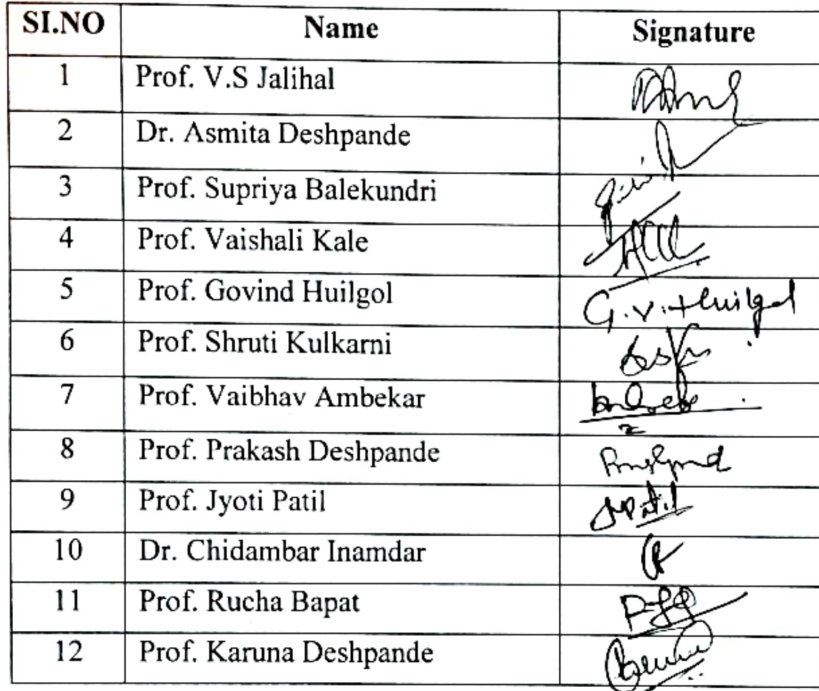 SI.NO Name Signature
1 Prof. V.S Jalihal
2 Dr. Asmita Deshpande
3 Prof. Supriya Balekundri
4 Prof. Vaishali Kale
5 Prof. Govind Huilgol G.V.Huilgol
6 Prof. Shruti Kulkarni
7 Prof. Vaibhav Ambekar
8 Prof. Prakash Deshpande
9 Prof. Jyoti Patil JPatil
10 Dr. Chidambar Inamdar
11 Prof. Rucha Bapat
12 Prof. Karuna Deshpande